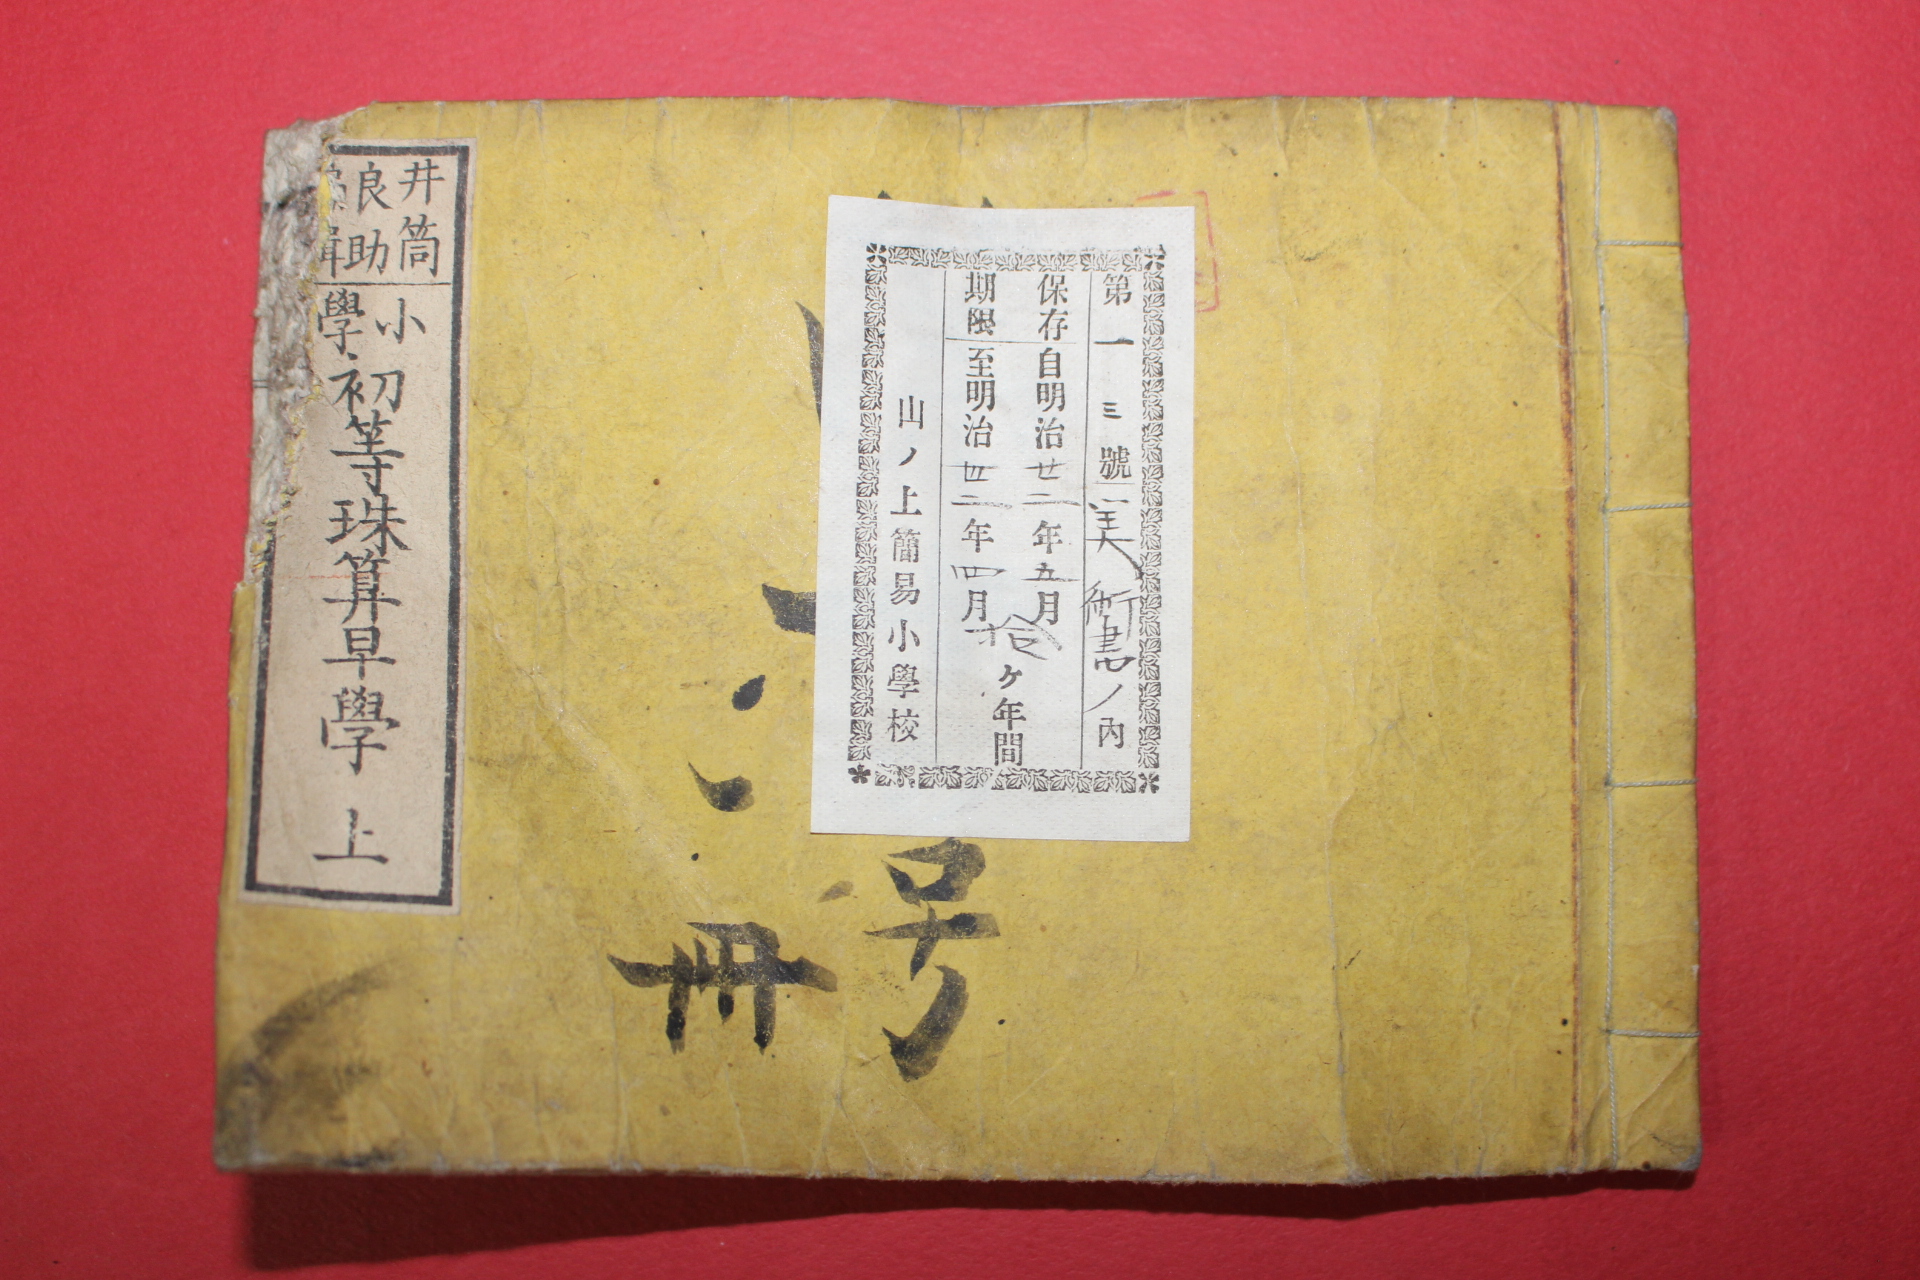 第一三號美術書ノ内
保存自明治廿二年五月
期限至明治四二年四月
拾ケ年間
山ノ上簡易小學校
号
冊
井筒
良助
輯
小學
初等珠算早學 上